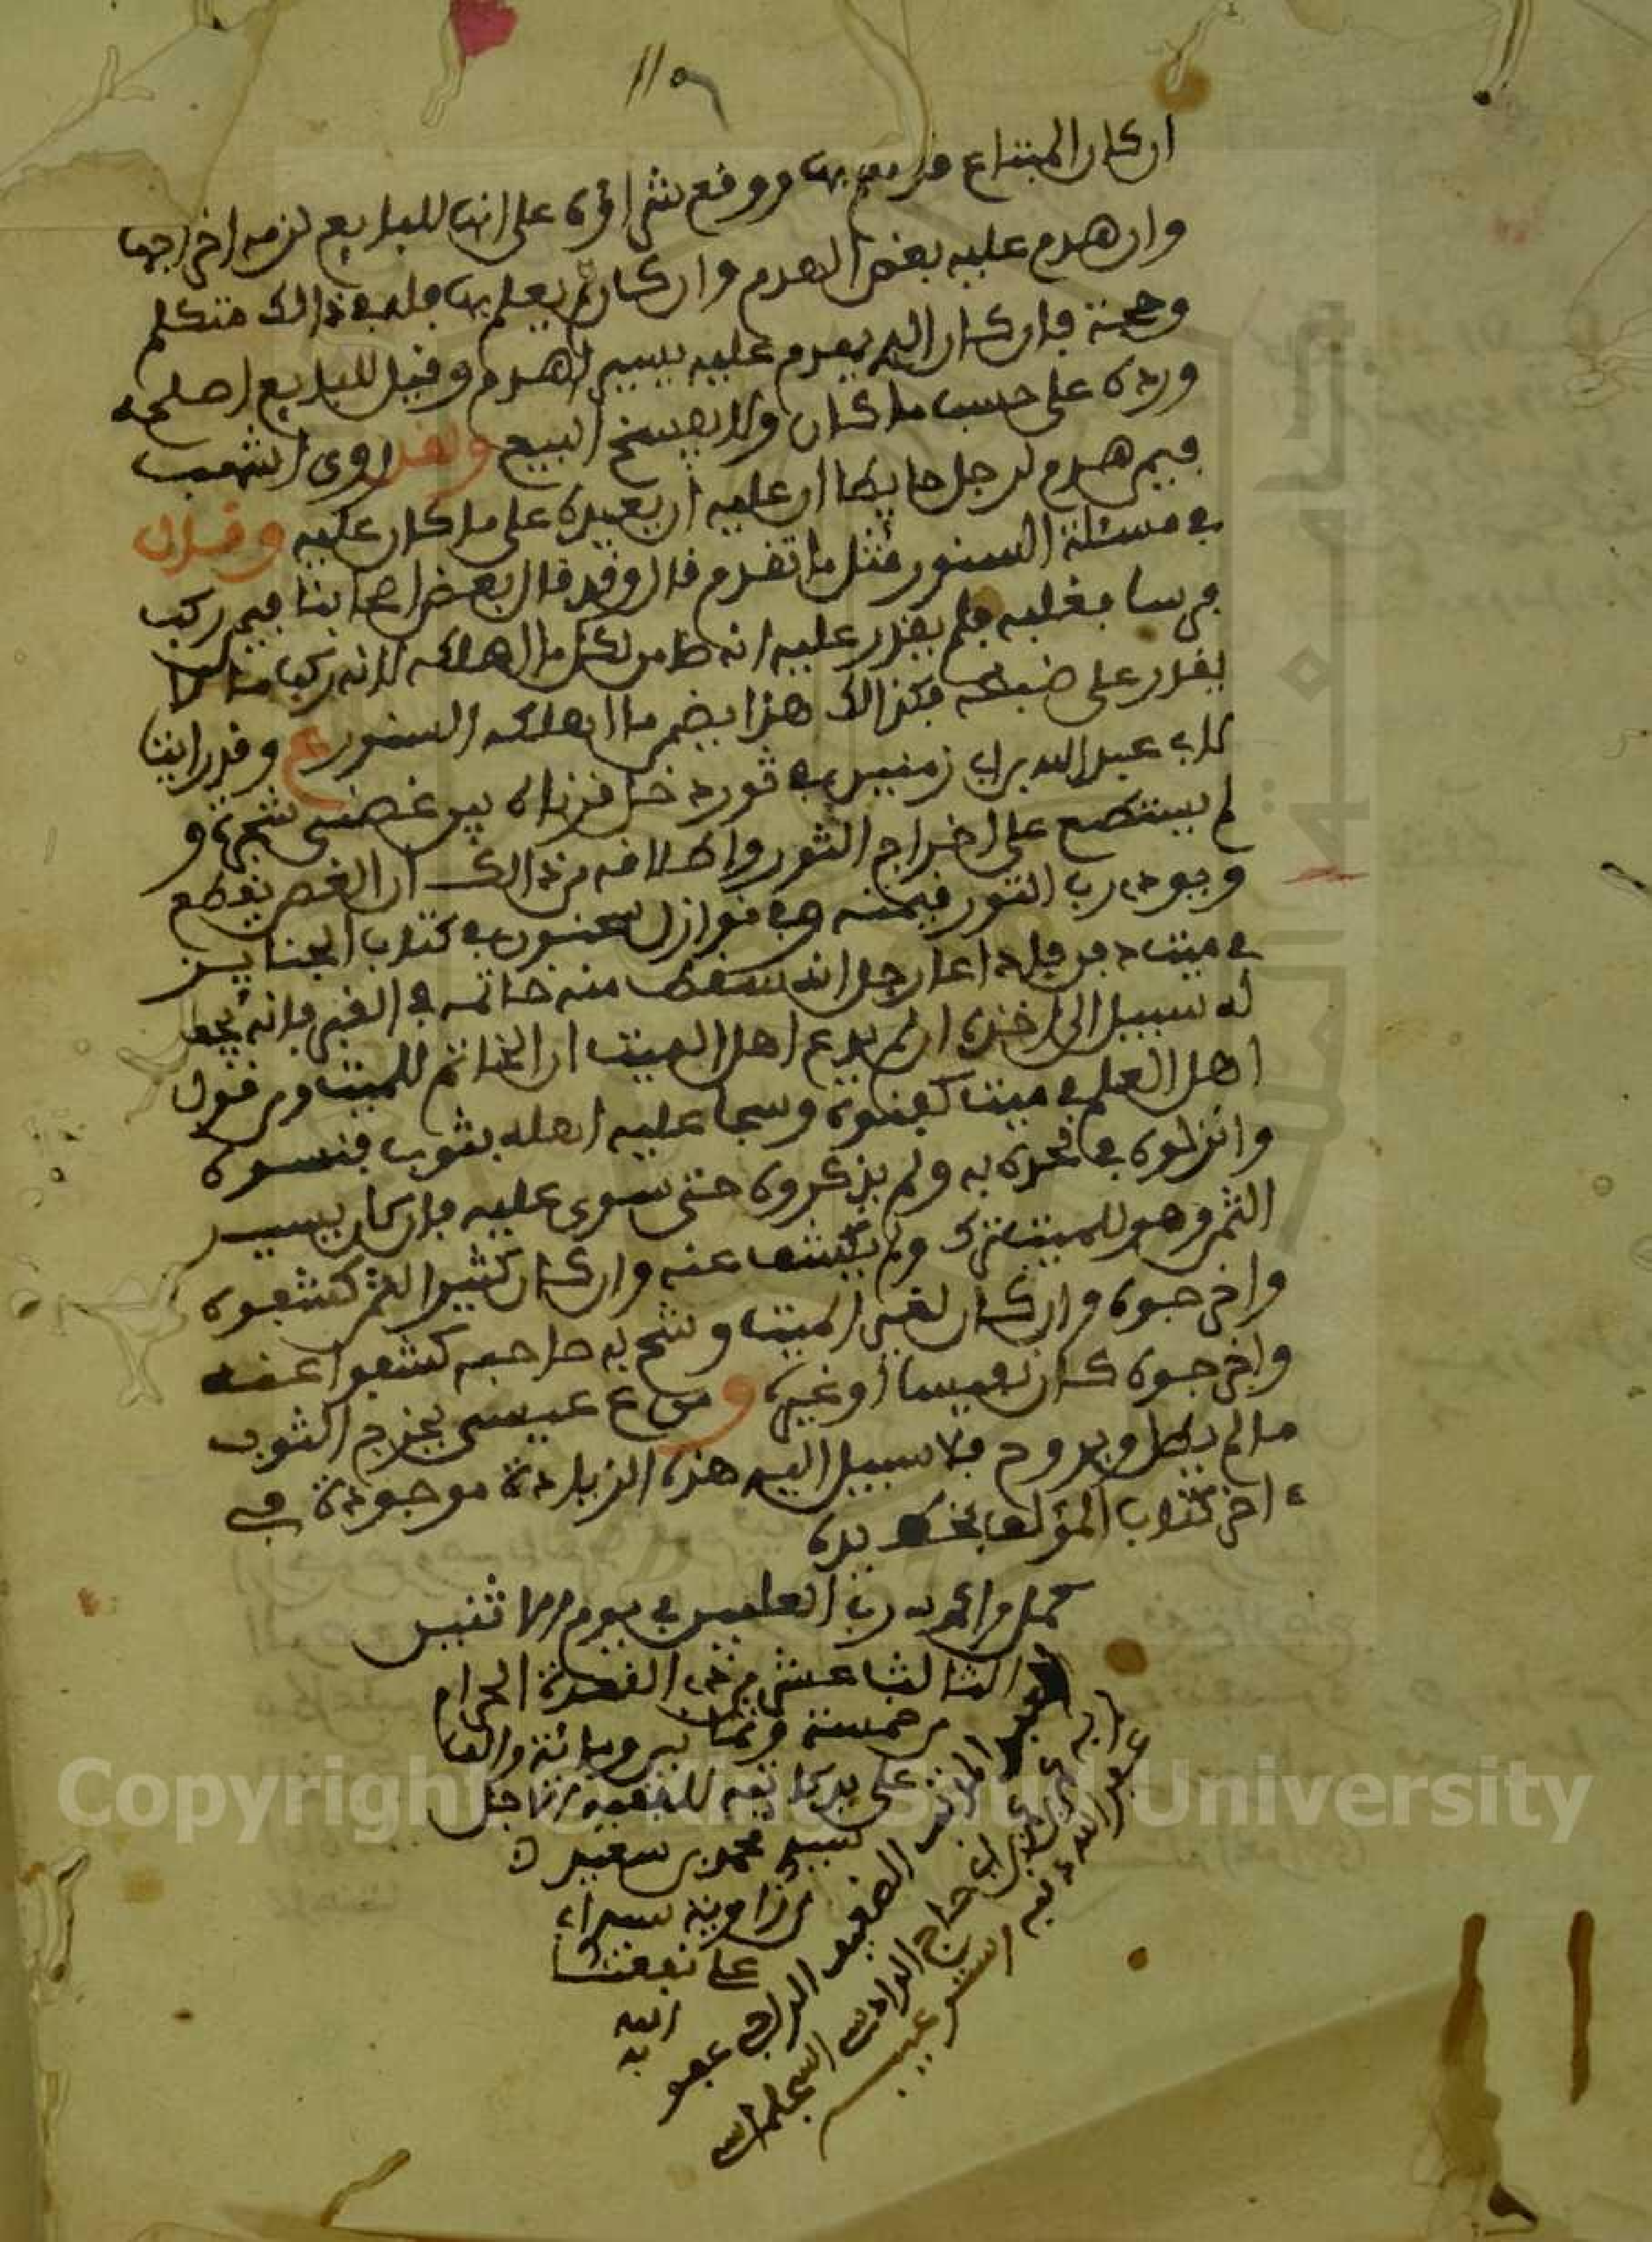 119
ان كان المبتاع قد علم بها ووقع شراؤه على انها للبايع لزمه اخراجها
وان هدم عليه بعض الهدم وان كان لم يعلم بها فله في ذالك متكلم
وحجة فان كان الذي يهدم عليه يسير الهدم وقيل للبايع اصلحه
ورده على حسب ما كان ولا يفسخ البيع وقد روى اشهب
فيمن هدم لرجل حايطا ان عليه ان يعيده على ما كان عليه وقال
في مسئلة السنور مثل ما تقدم قال وقد قال بعض اصحابنا فيمن ركب
فرسا فغلبه فلم يقدر عليه انه ضامن لكل ما اهلكه لانه ركب ما لا
يقدر على ضبطه فكذالك هذا يضمن ما اهلكه السنور ع وقد راينا
لابي عبد الله بن ابي زمنين في ثور دخل قرناه بين غصني شجرة و
لم يستطع على اخراج الثور واطلاقه من ذالك ان الغصن يقطع
ويودي رب الثور قيمته وفي نوازل سحنون في كتاب الجنايز
في ميت دفن فلما ادعا رجل انه سقط منه خاتمه في القبر فانه يجعل
له سبيل الى اخذه ان لم يدع اهل الميت ان الخاتم للميت ومن قول
اهل العلم في ميت كفنوه وسجا عليه اهله بثوب فنسوه
وانزلوه في لحده به ولم يذكروه حتى سوى عليه فان كان يسير
الثمن وهو للميت ترك ولم يكشف عنه وان كان كثير الثمن كشفوه
واخرجوه وان كان لغير الميت وشح به صاحبه كشفوا عنه
واخرجوه كان نفيسا او غيره و من ع عيسى يخرج الثوب
ما لم يطل ويروح فلا سبيل اليه هذه الزيادة موجودة في
ءاخر كتاب المؤلف بخط يده
كمل والحمد لله رب العلمين في يوم الاثنين
الثالث عشر من ذي القعدة الحرام
من خمسة وثمانين ومائة والف
على يد كاتبه للفقيه الاجل
سيد محمد بن سعيد
بزاوية سيدا
على نفعنا
الله
به
عبد المذنب الضعيف الراجي عفو
ابن حاج الوادي السجلماسي